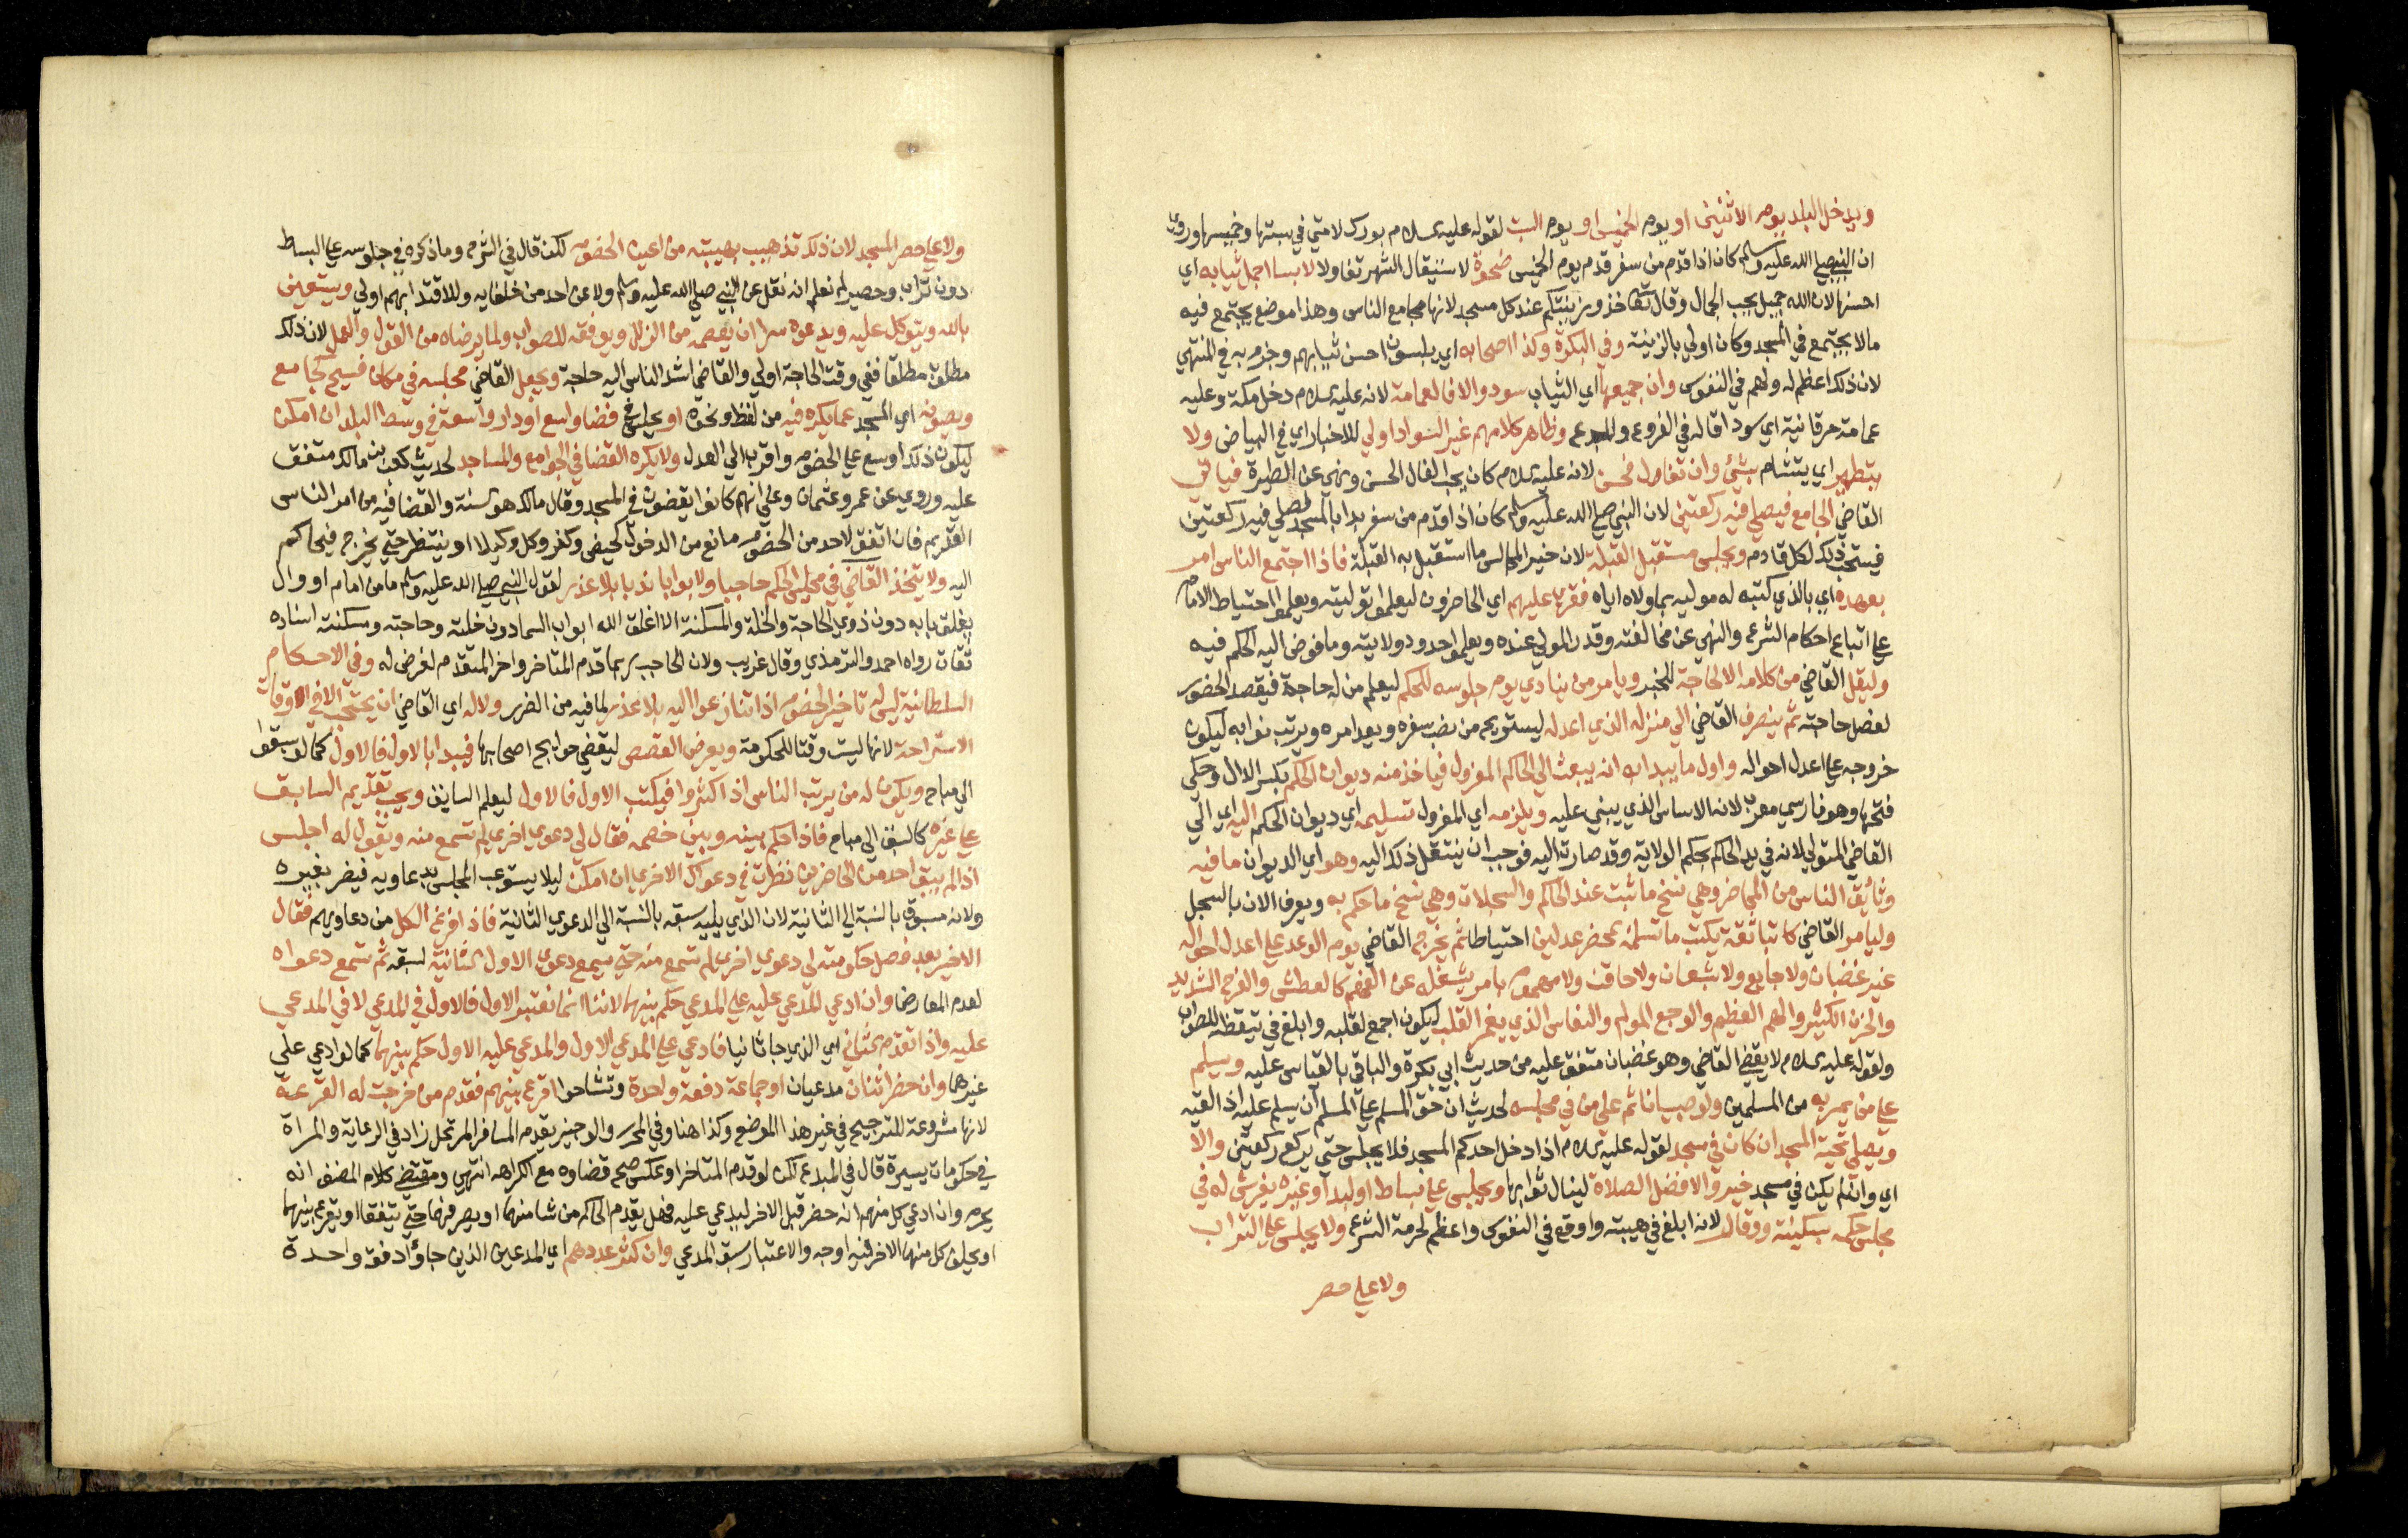 ويدخل البلد يوم الاثنين او يوم الخميس او يوم السبت لقوله عليه السلام بورك لامتي في سبتها وخميسها وروي
ان النبي صلي الله عليه وسلم كان اذا قدم من سفر قدم يوم الخميس ضحوة لاستقبال الشهر تفاولا لابسا اجمل ثيابه اي
احسنها لان الله جميل يحب الجمال وقال تعالى خذوا زينتكم عند كل مسجد لانها مجامع الناس وهذا موضع يجتمع فيه
مالا يجتمع في المسجد وكان اولي بالزينة وفي التبكرة وكذا اصحابه اي يلبسون احسن ثيابهم وجزم به في المنتهي
لان ذلك اعظم له ولهم في النفوس وان جميعها اي الثياب سود والا فالعمامة لانه عليه السلام دخل مكة وعليه
عمامة حرقانية اي سودا قاله في الفروع والمبدع وظاهر كلامهم غير السواد اولي للاخبار اي في البياض ولا
يتطير اي يتشام بشئ وان تفاول فحسن لانه عليه السلام كان يحب الفال الحسن ونهي عن الطيرة فياتي
القاضي الجامع فيصلي فيه ركعتين لان النبي صلي الله عليه وسلم كان اذا قدم من سفر بدا بالمسجد فصلي فيه ركعتين
فيستحب ذلك لكل قادم ويجلس مستقبل القبلة لان خير المجالس ما استقبل به القبلة فاذا اجتمع الناس امر
بعهده اي بالذي كتبه له موليه بما ولاه اياه فقري عليهم اي الحاضرون ليعلموا توليته ويعلموا احتياط الامام
علي اتباع احكام الشرع والنهي عن مخالفته وقدر المولي عنده ويعلموا حدود ولايته وما فوض اليه الحكم فيه
وليقل القاضي من كلامه الا لحاجة للخبر ويامر من ينادي يوم جلوسه للحكم ليعلم من له حاجة فيقصد الحضور
لفصل حاجته ثم ينصرف القاضي الي منزله الذي اعد له ليستريح من نصب سفره ويعد امره ويرتب نوابه ليكون
خروجه علي اعدل احواله واول ما يبدا به ان يبعث الي الحاكم المعزول فياخذ منه ديوان الحكم بكسر الدال وحكي
فتحها وهو فارسي معرب لانه الاساس الذي يبني عليه ويلزمه اي المعزول تسليمه اي ديوان الحكم اليه اي الي
القاضي المتولي لانه في يد الحاكم بحكم الولاية وقد صارت اليه فوجب ان ينتقل ذلك اليه وهو اي الديوان ما فيه
وثائق الناس من المحاضر وهي نسخ ما ثبت عند الحاكم والسجلات وهي نسخ ما حكم به ويعرف الان بالسجل
وليامر القاضي كاتبا ثقة يكتب ما تسلمه بمحضر عدلين احتياطا ثم يخرج القاضي يوم الوعد علي اعدل احواله
غير غضبان ولا جايع ولا شبعان ولا حاقن ولا مهموم بامر يشغله عن الفهم كالعطش والفرح الشديد
والحزن الكثير والهم العظيم والوجع المولم والنعاس الذي يغمر القلب ليكون اجمع لقلبه وابلغ في تيقظه للصواب
ولقوله عليه السلام لا يقضي القاضي وهو غضبان متفق عليه من حديث ابي بكرة والباقي بالقياس عليه ويسلم
علي من يمر به من المسلمين ولو صبيانا ثم علي من في مجلسه لحديث ان حق المسلم علي المسلم ان يسلم عليه اذا لقيه
ويصلي تحية المسجد ان كان في مسجد لقوله عليه السلام اذا دخل احدكم المسجد فلا يجلس حتي يركع ركعتين والا
اي وان لم يكن في مسجد خير والافضل الصلاة لينال ثوابها ويجلس علي بساط او لبد او غيره يفرش له في
مجلس حكمه بسكينة ووقار لانه ابلغ في هيبته واوقع في النفوس واعظم لحرمة الشرع ولا يجلس علي التراب
ولا علي حصر
ولا علي حصر المسجد لان ذلك تذهيب بهيبته من اعين الخصوم لكن قال في الشرح وما ذكره في جلوسه علي البساط
دون تراب وحصير لم نعلم انه نقل عن النبي صلي الله عليه وسلم ولا عن احد من خلفايه وللاقتدا بهم اولي ويستعين
بالله ويتوكل عليه ويدعوه سرا ان يعصمه من الزلل ويوفقه للصواب ولما يرضاه من القول والعمل لان ذلك
مطلوب مطلقا ففي وقت الحاجة اولي والقاضي اشد الناس اليه حاجة ويجعل القاضي مجلسه في مكان فسيح كجامع
ويصونه اي المسجد عما يكره فيه من لفظ ونحوه او يجلس في فضا واسع او دار واسعة في وسط البلد ان امكن
ليكون ذلك اوسع علي الخصوم واقرب الي العدل ولا يكره القضا في الجوامع والمساجد لحديث كعب بن مالك متفق
عليه وروي عن عمر وعثمان وعلي انهم كانوا يقضون في المسجد وقال مالك هو السنة والقضا فيه من امر الناس
القديم فان اتفق لاحد من الخصوم مانع من الدخول كحيض وكفر وكل وكيلا او ينتظر حتي يخرج فيحاكم
اليه ولا يتخذ القاضي في مجلس الحكم حاجبا ولا بوابا ندبا بلا عذر لقول النبي صلي الله عليه وسلم ما من امام او وال
يغلق بابه دون ذوي الحاجة والخلة والمسكنة الا اغلق الله ابواب السما دون خلته وحاجته ومسكنته اسناده
ثقات رواه احمد والترمذي وقال غريب ولان الحاجب ربما قدم المتاخر واخر المتقدم لغرض له وفي الاحكام
السلطانية ليس له تاخير الخصوم اذا تنازعوا اليه بلا عذر لما فيه من الضرر ولا له اي القاضي ان يحتجب الا في اوقات
الاستراحة لانها ليست وقتا للحكومة ويعرض القصص ليقضي حوايج اصحابها فيبدا بالاول فالاول كما لو سبقوا
الي مباح ويكون له من يرتب الناس اذا كثروا فيكتب الاول فالاول ليعلم السابق ويجب تقديم السابق
علي غيره كالسبق الي مباح فاذا حكم بينه وبين خصمه فقال لي دعوي اخري لم تسمع منه ويقول له اجلس
اذا لم يبق احد من الحاضرين نظرت في دعواك الاخري ان امكن ليلا يستوعب المجلس بدعاويه فيضر بغيره
ولانه مسبوق بالنسبة الي الثانية لان الذي يليه سبقه بالنسبة الي الدعوي الثانية فاذا فرغ الكل من دعاويهم فقال
الاخير بعد فصل حكومته لي دعوي اخري لم تسمع منه حتي يسمع دعوي الاول الثانية لسبقه ثم تسمع دعواه
لعدم المعارض وان ادعي المدعي عليه علي المدعي حكم بينهما لاننا انما نعتبر الاول فالاول في المدعي لا في المدعي
عليه واذا تقدم الثاني اي الذي جا ثانيا فادعي علي المدعي الاول والمدعي عليه الاول حكم بينهما كما لو ادعي علي
غيرهما وان حضر اثنان مدعيان او جماعة دفعة واحدة وتشاحوا اقرع بينهم فقدم من خرجت له القرعة
لانها مشروعة للترجيح في غير هذا الموضع وكذا هنا وفي المحرر والوجيز يقدم المسافر المرتحل زاد في الرعاية والمراة
في حكومات يسيرة قال في المبدع لكن لو قدم المتاخر او عكس صح قضاوه مع الكراهه انتهي ومقتضي كلام المصنف انه
يحرم وان ادعي كل منهم انه حضر قبل الاخر ليدعي عليه فهل يقدم الحاكم من شا منهما او يصرفهما حتي يتفقا او يقرع بينهما
او يحلف كل منهما للاخر فيه اوجه والاعتبار بسبق المدعي وان كثر عددهم اي المدعين الذين جاوا دفعة واحدة